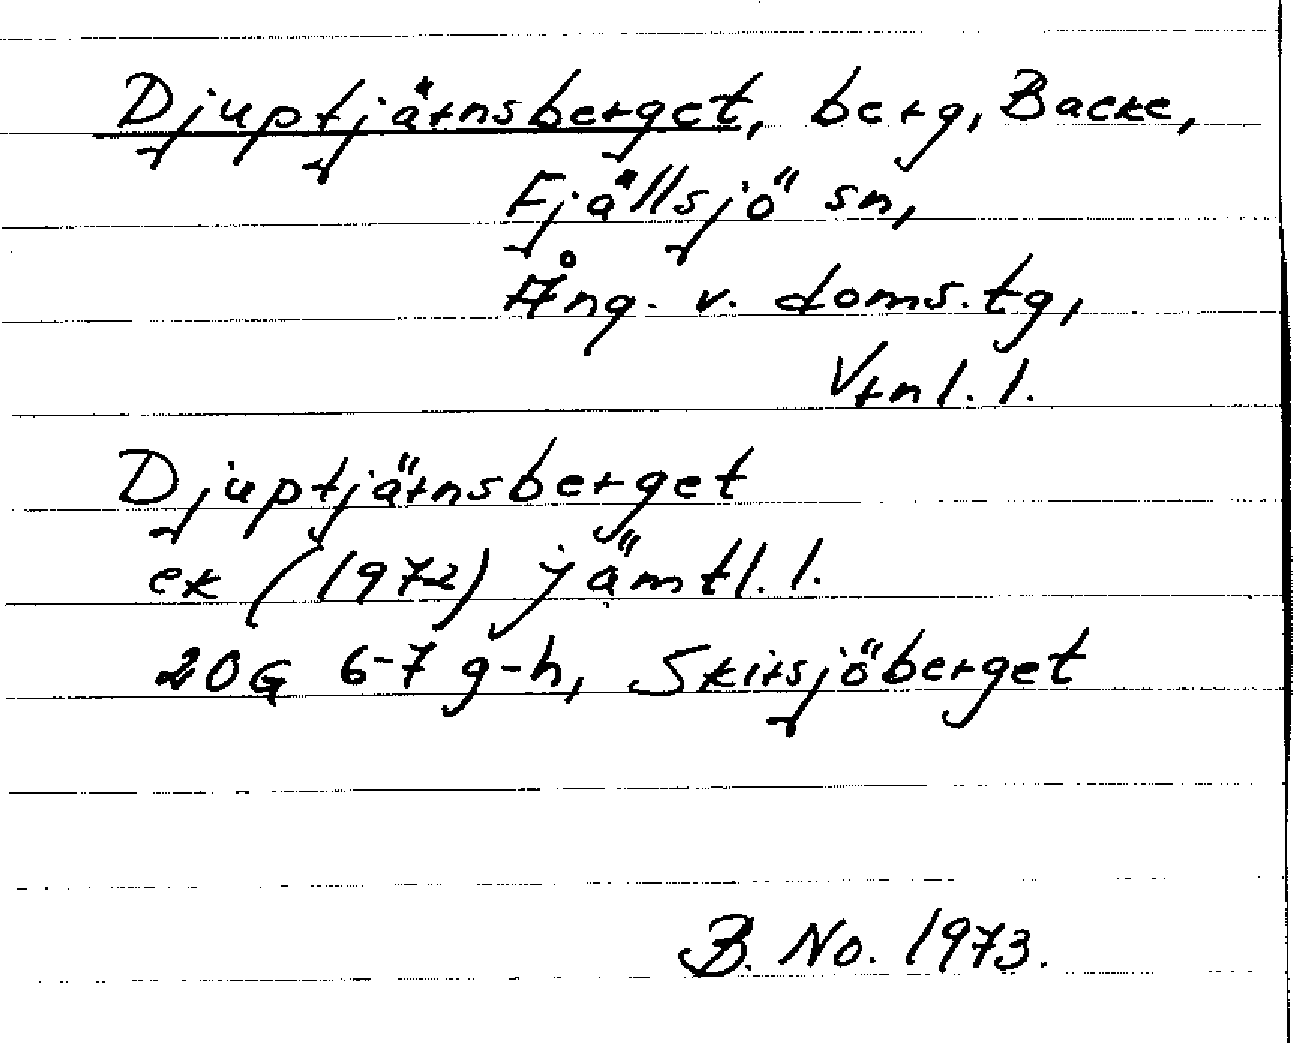 Djuptjärnsberget, berg, Backe,
Fjällsjö sn,
Ång. v. doms. tg,
Vtnl. l.
Djuptjärnsberget
ek (1972) Jämtl. l.
20G 6-7 g-h, Skirsjöberget
B. No. 1973.